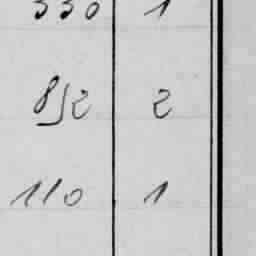 330 1
852 2
110 1